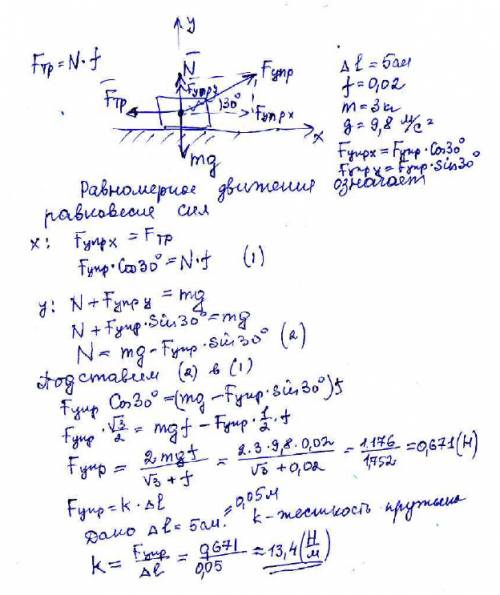 y
Fтр = N·f
N̄
Fупр
Fупр y
F̄тр
30°
Fупр x
x
mg
Δl = 5см
f = 0,02
m = 3кг
g = 9,8 м/с²
Fупрx = Fупр·Cos30°
Fупр y = Fупр·Sin30°
Равномерное движения означает
равновесие сил
x: Fупрx = Fтр
Fупр·Cos30° = N·f (1)
y: N + Fупр y = mg
N + Fупр·Sin30° = mg
N = mg - Fупр·Sin30° (2)
Подставим (2) в (1)
Fупр Cos30° = (mg - Fупр·Sin30°)f
Fупр·√3/2 = mgf - Fупр·1/2·f
Fупр = 2mgf/(√3 + f) = 2·3·9,8·0,02/(√3 + 0,02) = 1.176/1,752 = 0,671 (Н)
Fупр = k·Δl
Дано Δl = 5см = 0,05м k - жесткость пружины
k = Fупр/Δl = 0,671/0,05 ≈ 13,4 (Н/м)